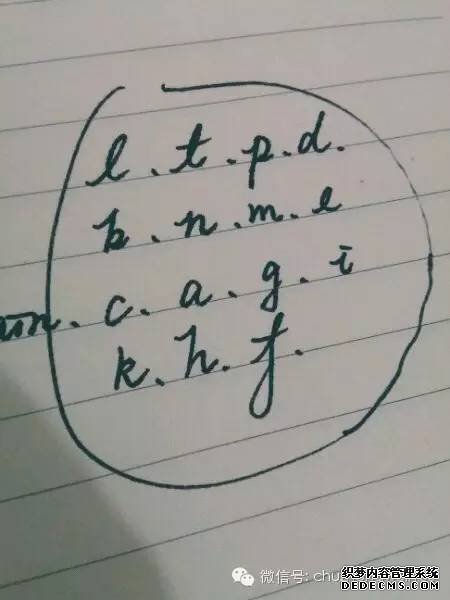 l. t. p. d.
b. n. m. e
c. a. g. i
k. h. f.
微信号: chu
织梦内容管理系统
DEDECMS.COM